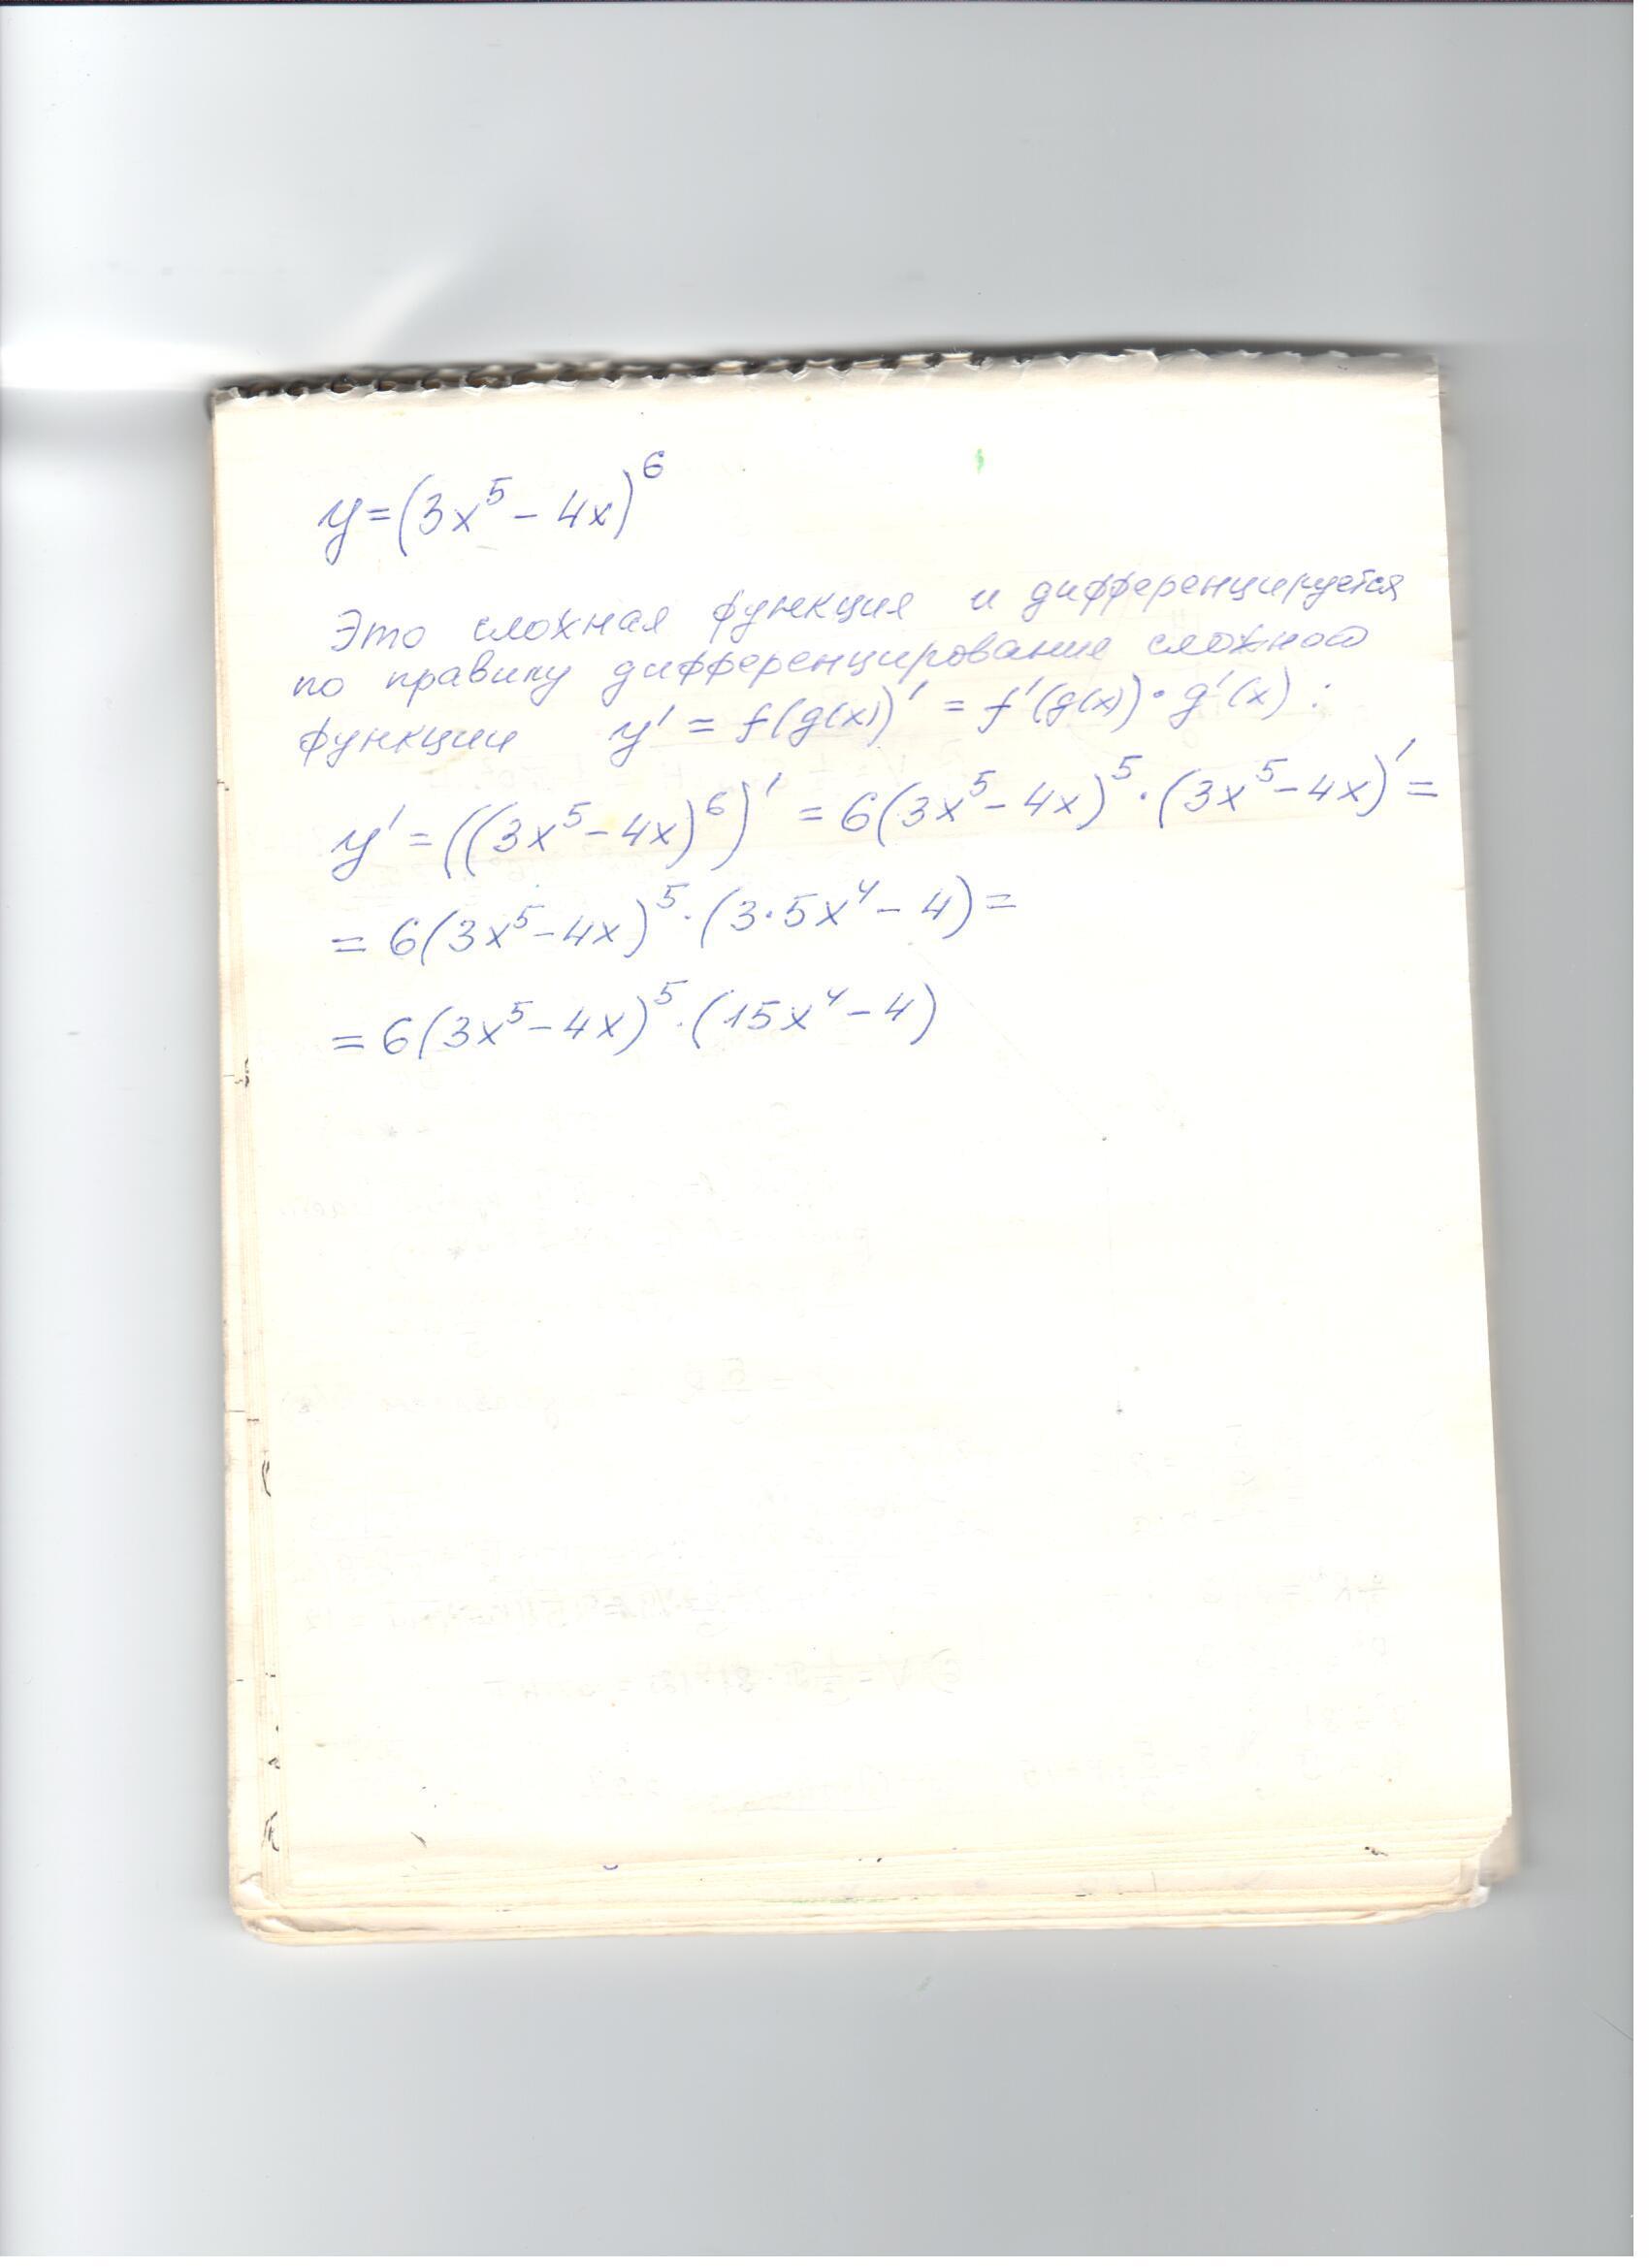 y=(3x⁵-4x)⁶
Это сложная функция и дифференцируется
по правилу дифференцирование сложного
функции y' = f(g(x))' = f'(g(x))·g'(x):
y'=((3x⁵-4x)⁶)' =6(3x⁵-4x)⁵·(3x⁵-4x)'=
=6(3x⁵-4x)⁵·(3·5x⁴-4)=
=6(3x⁵-4x)⁵·(15x⁴-4)